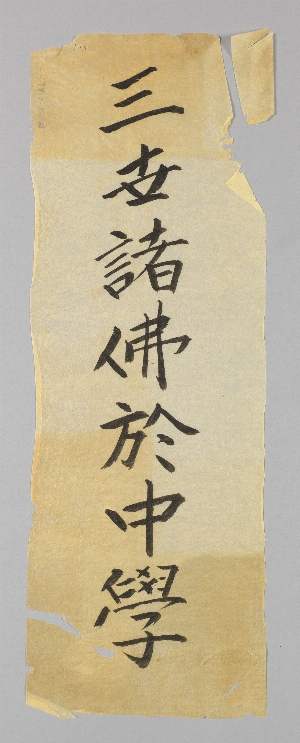 三世諸佛於中學